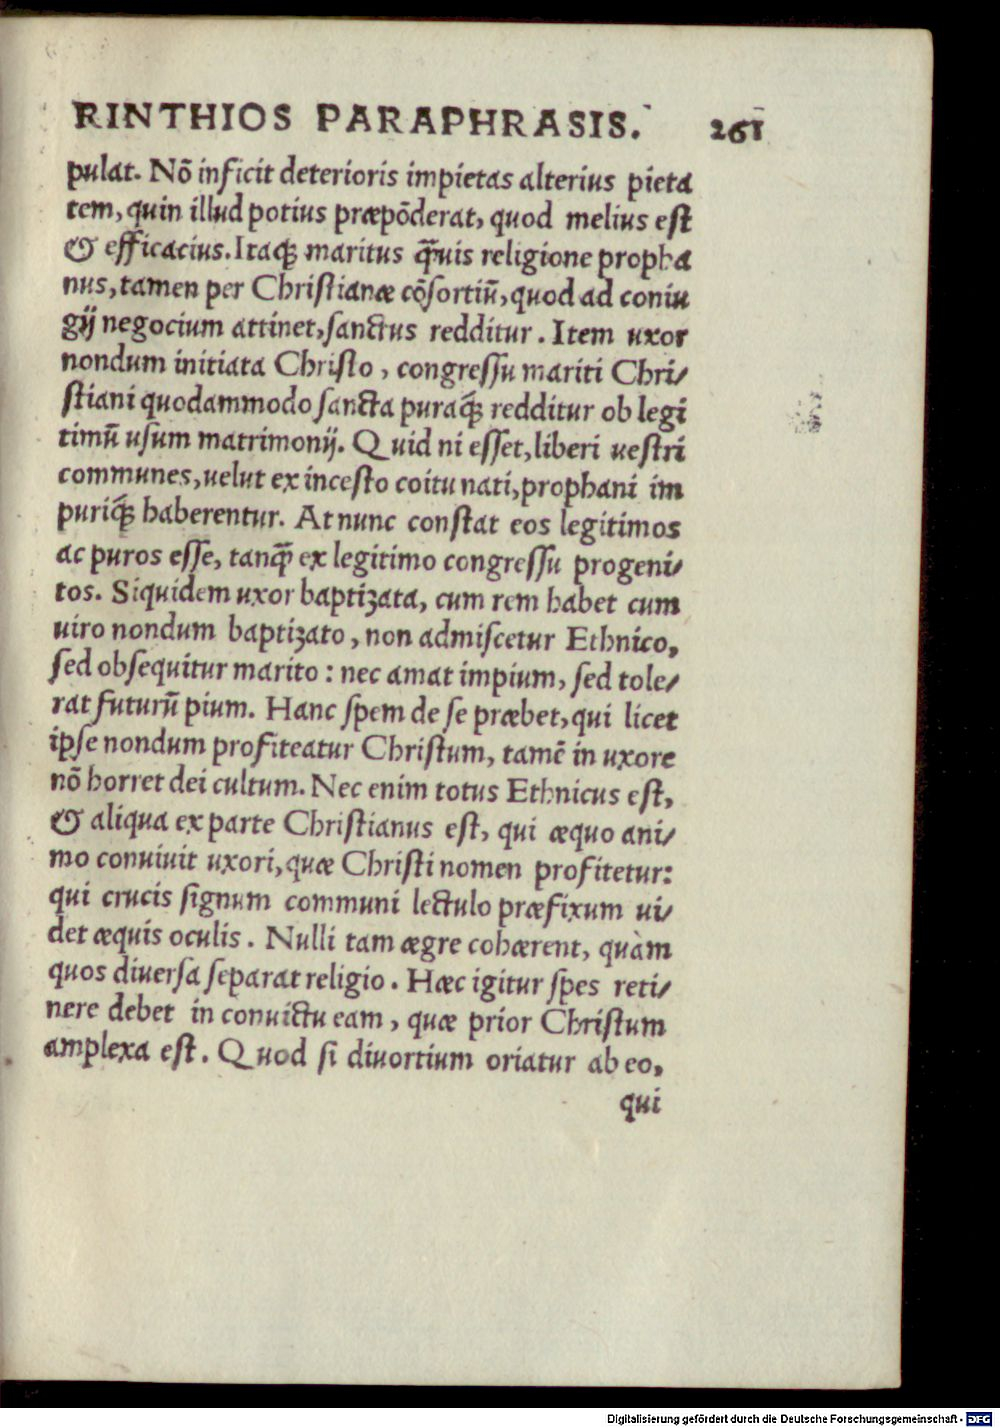 RINTHIOS PARAPHRASIS. 261
pulat. Nō inficit deterioris impietas alterius pieta
tem, quin illud potius præpōderat, quod melius est
& efficacius. Itaq́ꝫ maritus q̄uis religione propha
nus, tamen per Christianæ cōsortiū, quod ad coniu
gij negocium attinet, sanctus redditur. Item uxor
nondum initiata Christo, congressu mariti Chri/
stiani quodammodo sancta puraq́ꝫ redditur ob legi
timū usum matrimonij. Quid ni esset, liberi uestri
communes, uelut ex incesto coitu nati, prophani im
puriq́ꝫ haberentur. At nunc constat eos legitimos
ac puros esse, tanq̄ ex legitimo congressu progeni/
tos. Siquidem uxor baptizata, cum rem habet cum
uiro nondum baptizato, non admiscetur Ethnico,
sed obsequitur marito: nec amat impium, sed tole/
rat futurū pium. Hanc spem de se præbet, qui licet
ipse nondum profiteatur Christum, tamē in uxore
nō horret dei cultum. Nec enim totus Ethnicus est,
& aliqua ex parte Christianus est, qui æquo ani/
mo conuiuit uxori, quæ Christi nomen profitetur:
qui crucis signum communi lectulo præfixum ui/
det æquis oculis. Nulli tam ægre cohærent, quàm
quos diuersa separat religio. Hæc igitur spes reti/
nere debet in conuictu eam, quæ prior Christum
amplexa est. Quod si diuortium oriatur ab eo,
qui
Digitalisierung gefördert durch die Deutsche Forschungsgemeinschaft - DFG